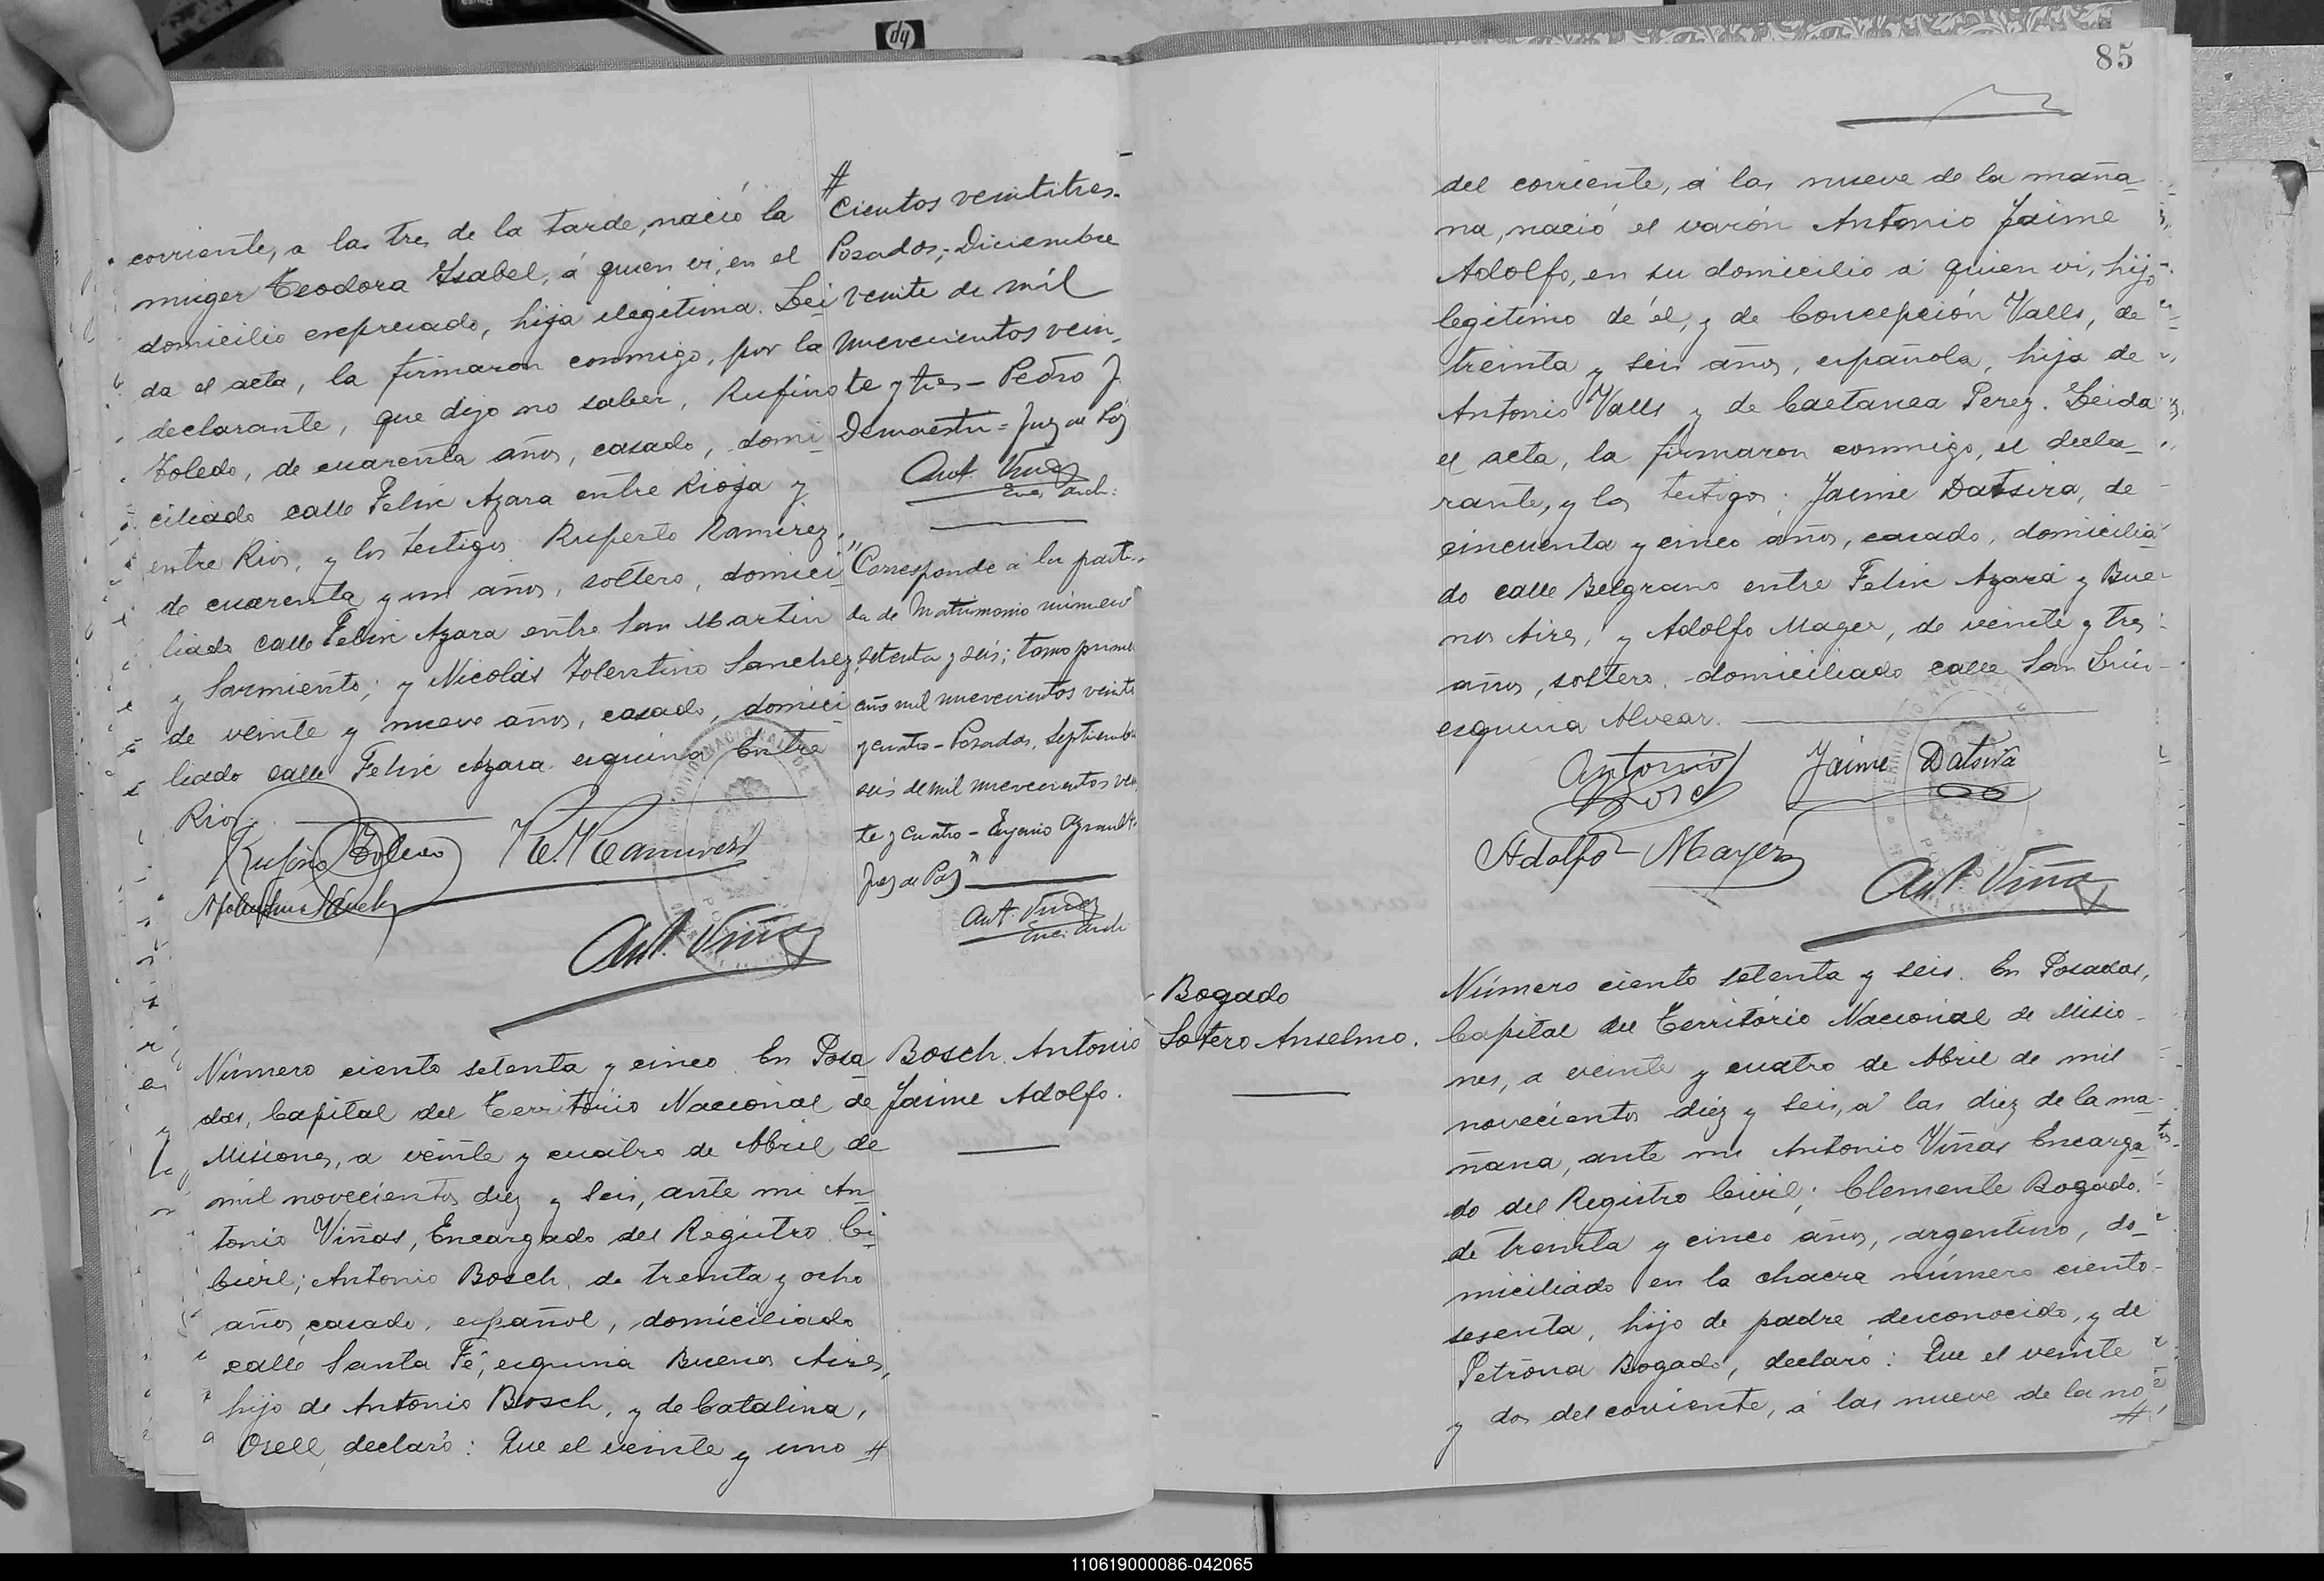 corriente, a las tres de la tarde, nació la
muger Teodora Ysabel, á quien vi, en el
domicilio expresado, hija ilegitima. Lei
da el acta, la firmaron conmigo, por la
declarante, que dijo no saber, Rufino
Toledo, de cuarenta años, casado, domi
ciliado calle Felix Azara entre Rioja y
entre Rios, y los testigos Ruperto Ramirez,
de cuarenta y un años, soltero, domici
liado calle Felix Azara entre San Martin
y Sarmiento; y Nicolás Tolentino Sanchez,
de veinte y nueve años, casado, domici
liado calle Felix Azara esquina Entre
Rios.
Rufino Toledo
R. Ramirez
Ant. Viñas
#
cientos veintitres.
Posadas; Diciembre
veinte de mil
nuevecientos vein
te y tres - Pedro J.
Demaestri = Juez de Paz
Ant. Viñas
Enc. Arch:
"Corresponde a la parti
da de Matrimonio número
setenta y seis; tomo primero
año mil nuevecientos veinte
y cuatro - Posadas, Septiembre
seis de mil nuevecientos vein
te y cuatro - Eugenio
Juez de Paz"
Ant. Viñas
Enc. Arch
Número ciento setenta y cinco. En Posa
das, Capital del Territorio Nacional de
Misiones, a veinte y cuatro de Abril de
mil novecientos diez y seis, ante mi An
tonio Viñas, Encargado del Registro Ci
Civil; Antonio Bosch, de treinta y ocho
años, casado, español, domiciliado
calle Santa Fé, esquina Buenos Aires,
hijo de Antonio Bosch, y de Catalina,
Osell, declaró: Que el veinte y uno #
Bosch. Antonio
Jaime Adolfo.
85
del corriente, á las nueve de la maña
na, nació el varón Antonio Jaime
Adolfo, en su domicilio á quien vi, hijo
legitimo de él, y de Concepción Valls, de
treinta y seis años, española, hija de
Antonio Valls y de Caetanea Perez. Leida
el acta, la firmaron conmigo, el decla
rante, y los testigos: Jaime Datsira, de
cincuenta y cinco años, casado, domicilia
do calle Belgrano entre Felix Azará y Bue
nos Aires, y Adolfo Mayer, de veinte y tres
años, soltero, domiciliado calle San Luis
esquina Alvear.
Antonio Bosch
Jaime Datsira
Adolfo Mayer
Ant. Viñas
Bogado
Sotero Anselmo.
Número ciento setenta y seis. En Posadas,
Capital del Territorio Nacional de Misio
nes, a veinte y cuatro de Abril de mil
novecientos diez y seis, a las diez de la ma
ñana, ante mi Antonio Viñas Encarga
do del Registro Civil; Clemente Bogado.
de treinta y cinco años, argentino, do
miciliado en la chacra número ciento
sesenta, hijo de padre desconocido, y de
Petrona Bogado, declaró: Que el veinte
y dos del corriente, á las nueve de la no
#
110619000086-042065